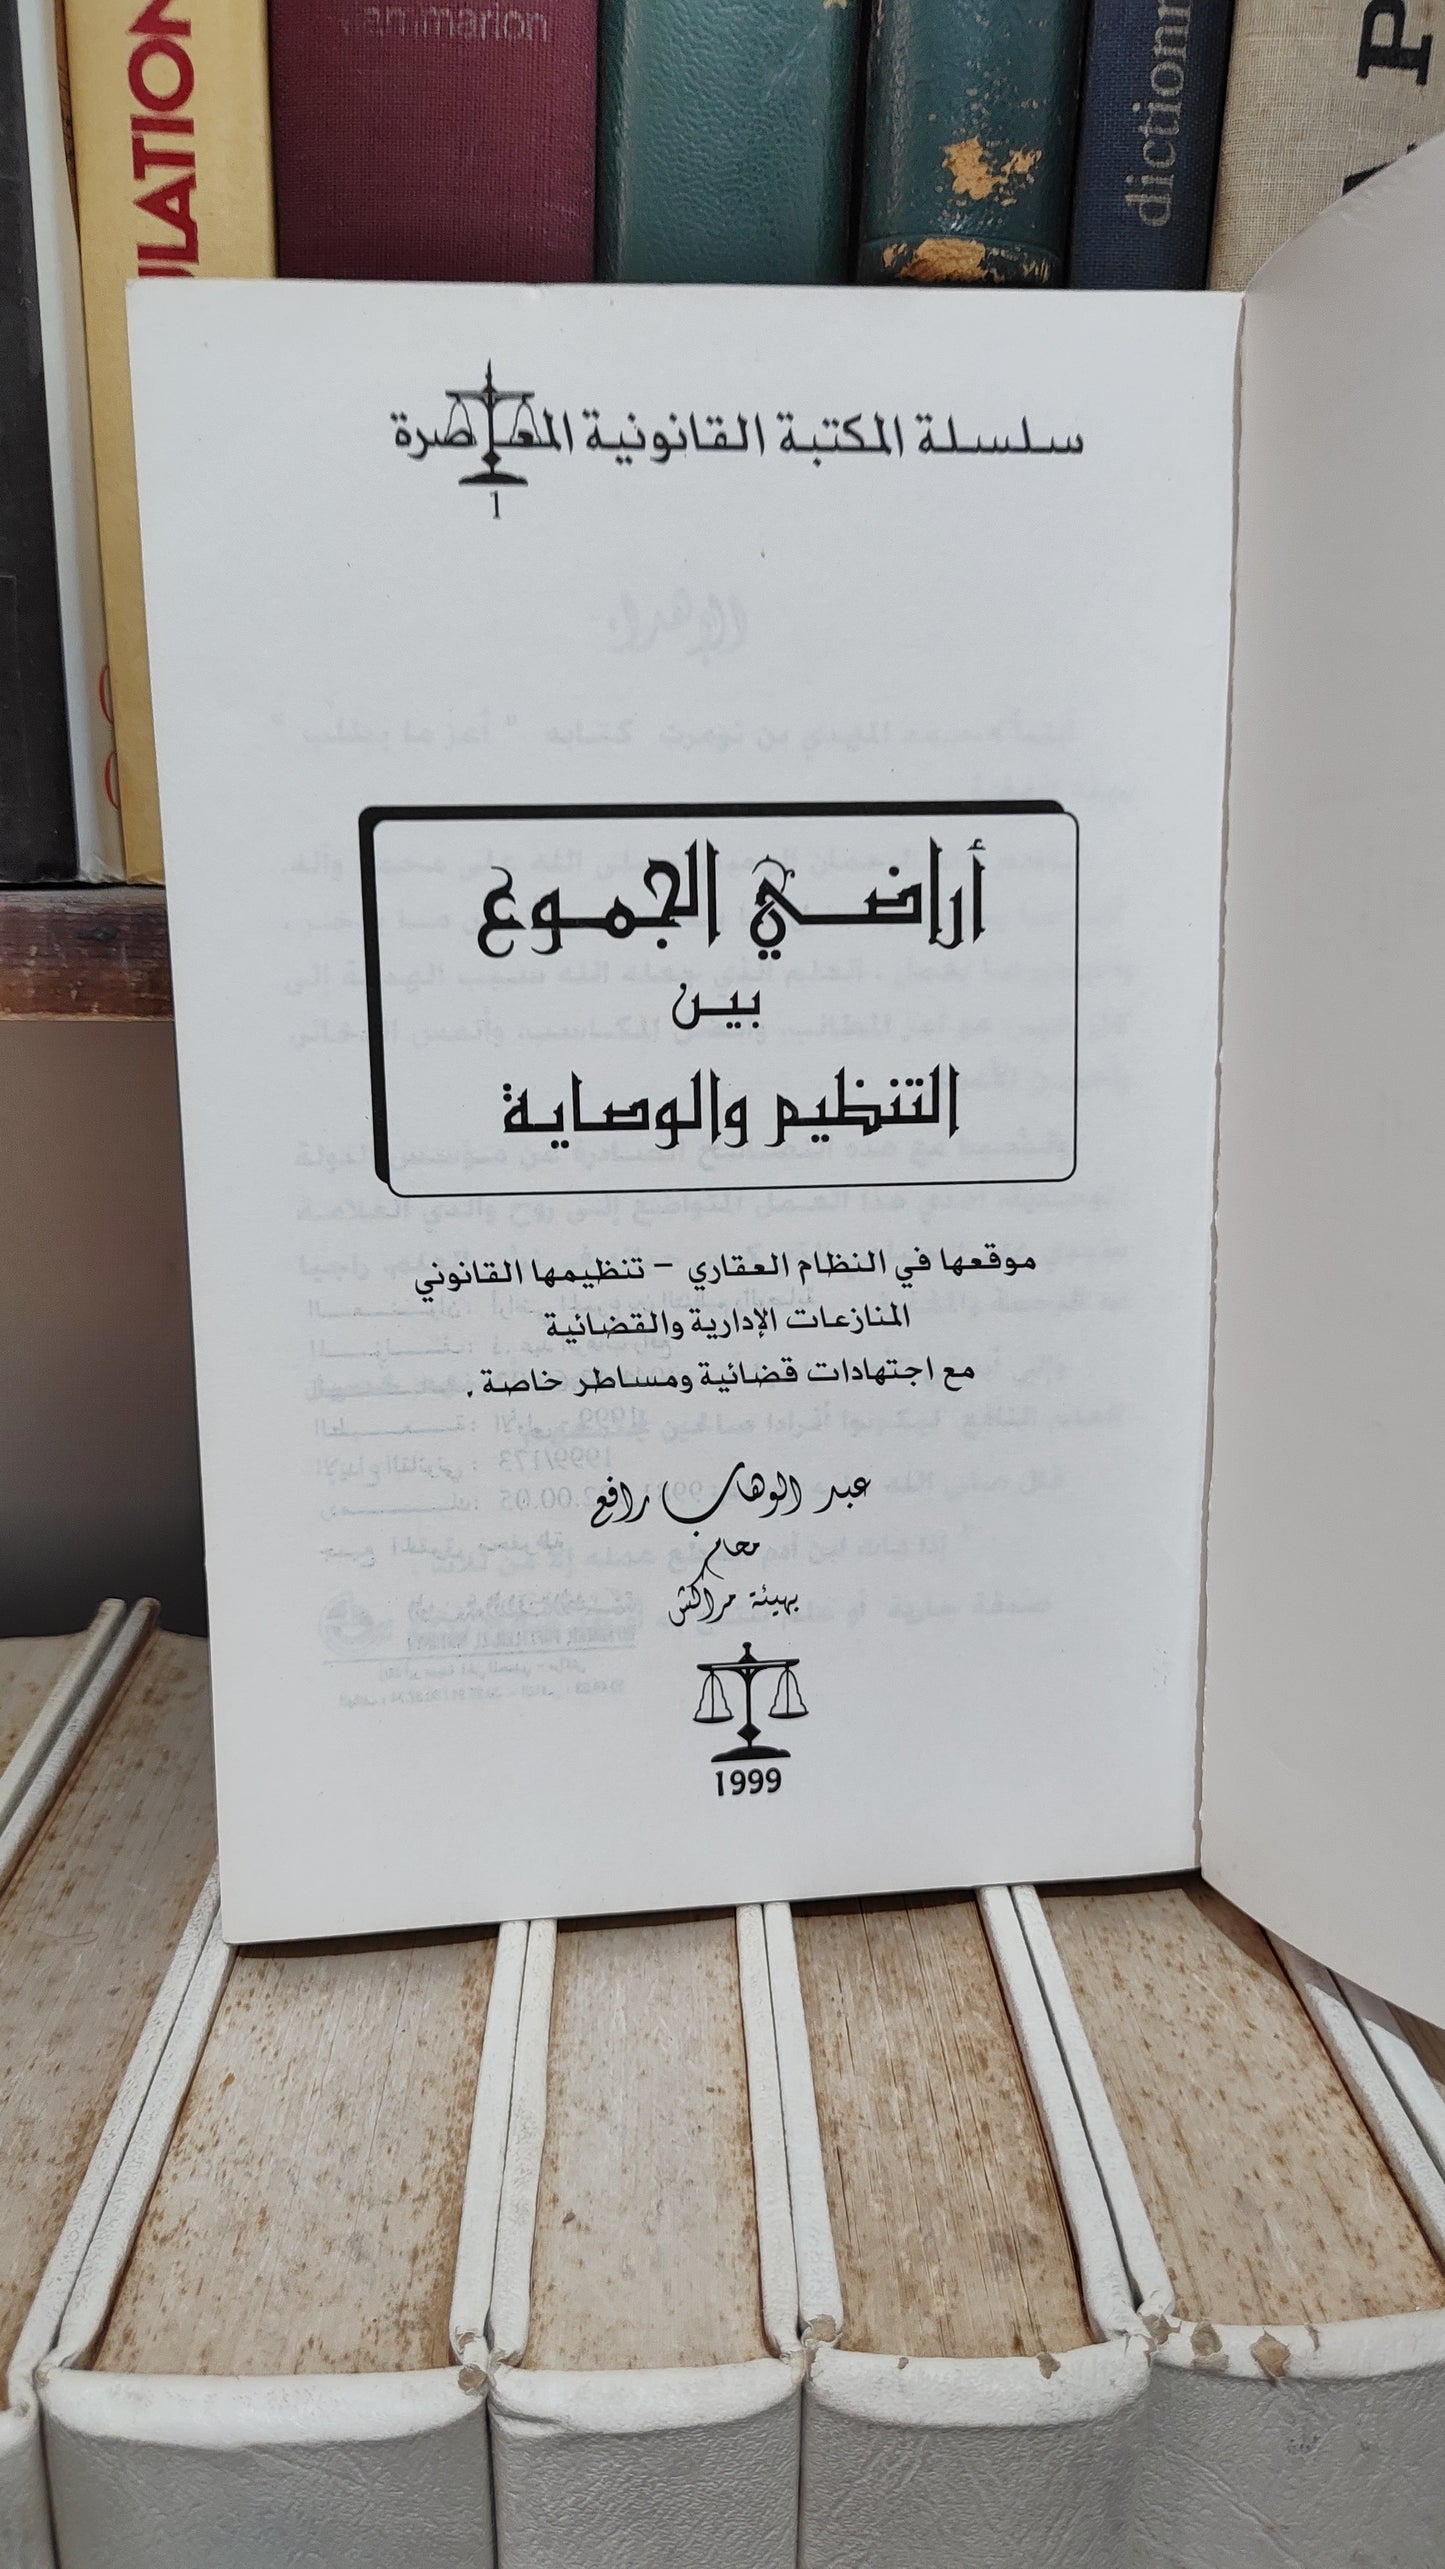 flammarion
ULATION
dictionn
سلسلة المكتبة القانونية المعاصرة
1
أراضي الجموع
بين
التنظيم والوصاية
موقعها في النظام العقاري – تنظيمها القانوني
المنازعات الإدارية والقضائية
مع اجتهادات قضائية ومساطر خاصة .
عبد الوهاب رافع
محام
بهيئة مراكش
1999